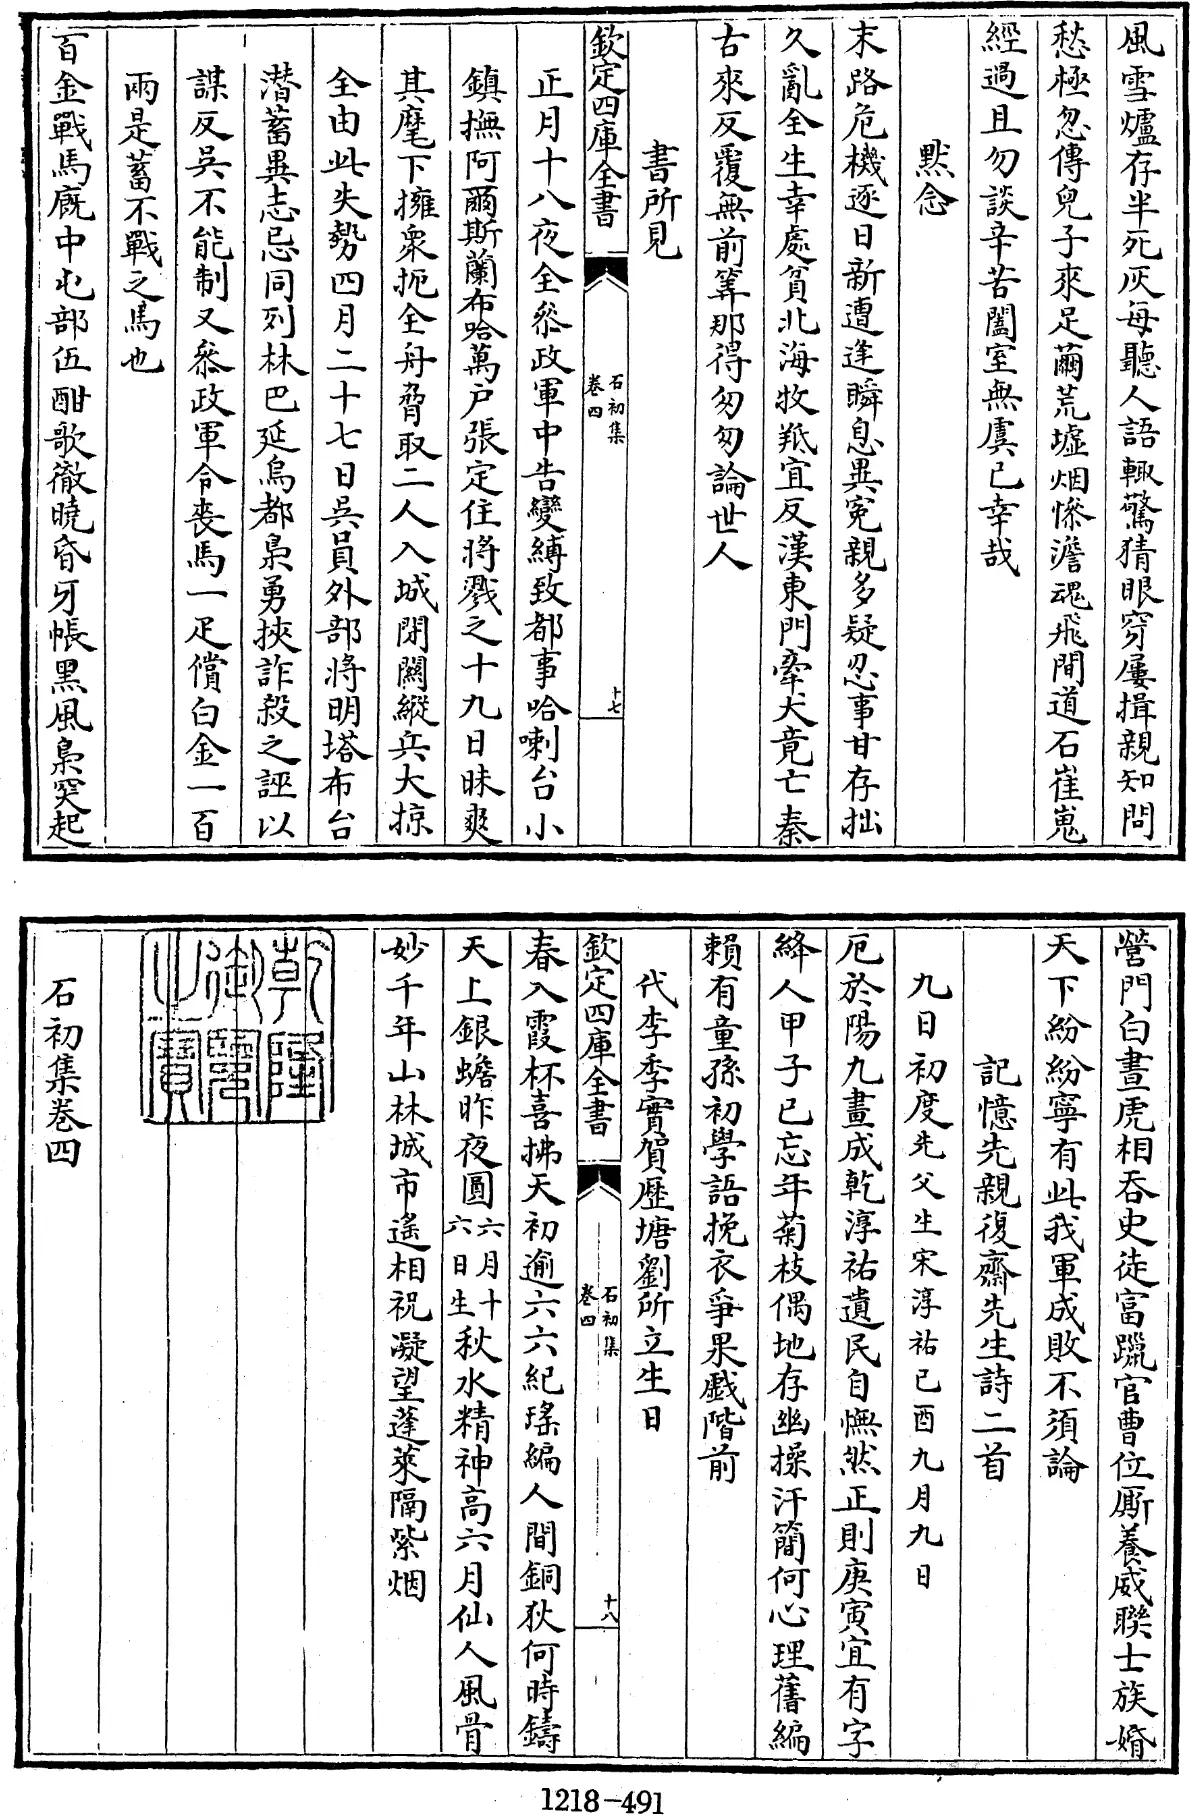 風雪爐存半死灰每聽人語輒驚猜眼穿屢揖親知問
愁極忽傳兒子來足繭荒墟烟慘澹魂飛間道石崔嵬
經過且勿談辛苦闔室無虞已幸哉
黙念
末路危機逐日新遭逢瞬息異寃親多疑忍事甘存拙
久亂全生幸處貧北海牧羝宜反漢東門牽犬竟亡秦
古來反覆無前筭那得匆匆論世人
書所見
欽定四庫全書
石初集
卷四
十七
正月十八夜全叅政軍中告變縛致都事哈喇台小
鎮撫阿爾斯蘭布哈萬户張定住將戮之十九日昧爽
其麾下擁衆扼全舟脅取二人入城閉闗縱兵大掠
全由此失勢四月二十七日吳員外部將明塔布台
潜蓄異志忌同列林巴延烏都梟勇挾詐殺之誣以
謀反吳不能制又叅政軍令喪馬一疋償白金一百
兩是蓄不戰之馬也
百金戰馬廐中屯部伍酣歌徹曉昏牙帳黑風梟突起
營門白晝虎相呑史徒富躐官曹位厮養威聯士族婚
天下紛紛寧有此我軍成敗不須論
記憶先親復齋先生詩二首
九日初度先父生宋淳祐己酉九月九日
厄於陽九畫成乾淳祐遺民自憮然正則庚寅宜有字
絳人甲子已忘年菊枝偶地存幽操汗簡何心理舊編
賴有童孫初學語挽衣爭果戲階前
代李季實賀歴塘劉所立生日
欽定四庫全書
石初集
卷四
十八
春入霞杯喜拂天初逾六六紀瑤編人間銅狄何時鑄
天上銀蟾昨夜圓六月十六日生秋水精神高六月仙人風骨
妙千年山林城市遙相祝凝望蓬萊隔紫烟
乾隆御覽之寶
石初集卷四
1218-491